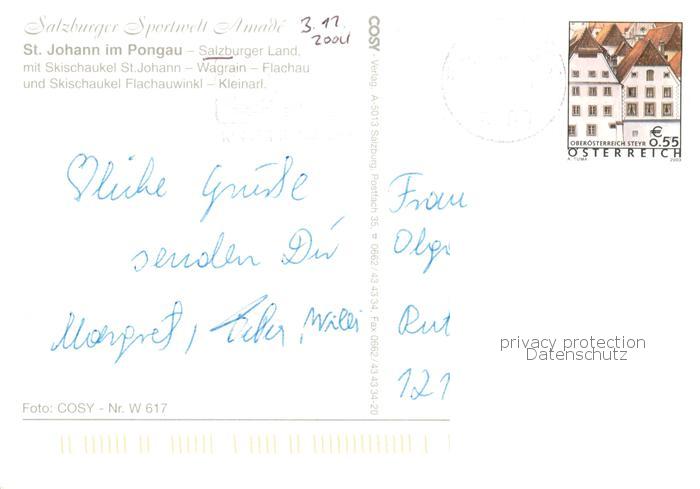 Salzburger Sportwelt Amadé
3.11.
2004
St. Johann im Pongau – Salzburger Land,
mit Skischaukel St.Johann – Wagrain – Flachau
und Skischaukel Flachauwinkl – Kleinarl.
♡liche Grüße
senden Dir
Margret, Willi
Foto: COSY - Nr. W 617
COSY - Verlag, A-5013 Salzburg, Postfach 35, ☎ 0662/43 43 34, Fax 0662/43 43 34-20
OBERÖSTERREICH STEYR
€ 0.55
ÖSTERREICH
A. TUMA 2003
Frau
Olg
Rut
121
privacy protection
Datenschutz